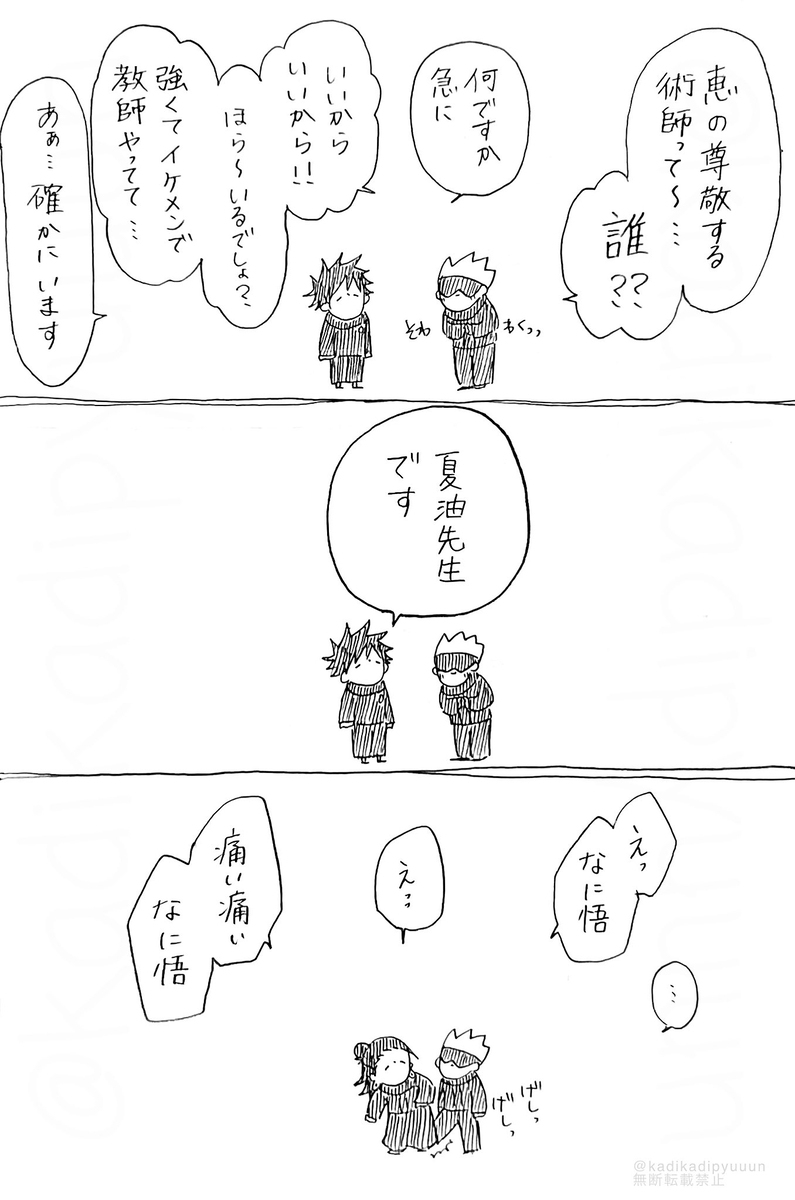 恵の尊敬する
術師って〜…
誰??
何ですか
急に
いいから
いいから!!
ほら〜いるでしょ?
強くてイケメンで
教師やってて…
あぁ…確かにいます
そわ
わくっっ
夏油先生
です
えっ
なに悟
…
えっ
痛い痛い
なに悟
げしっ
げしっ
@kadikadipyuuun
無断転載禁止